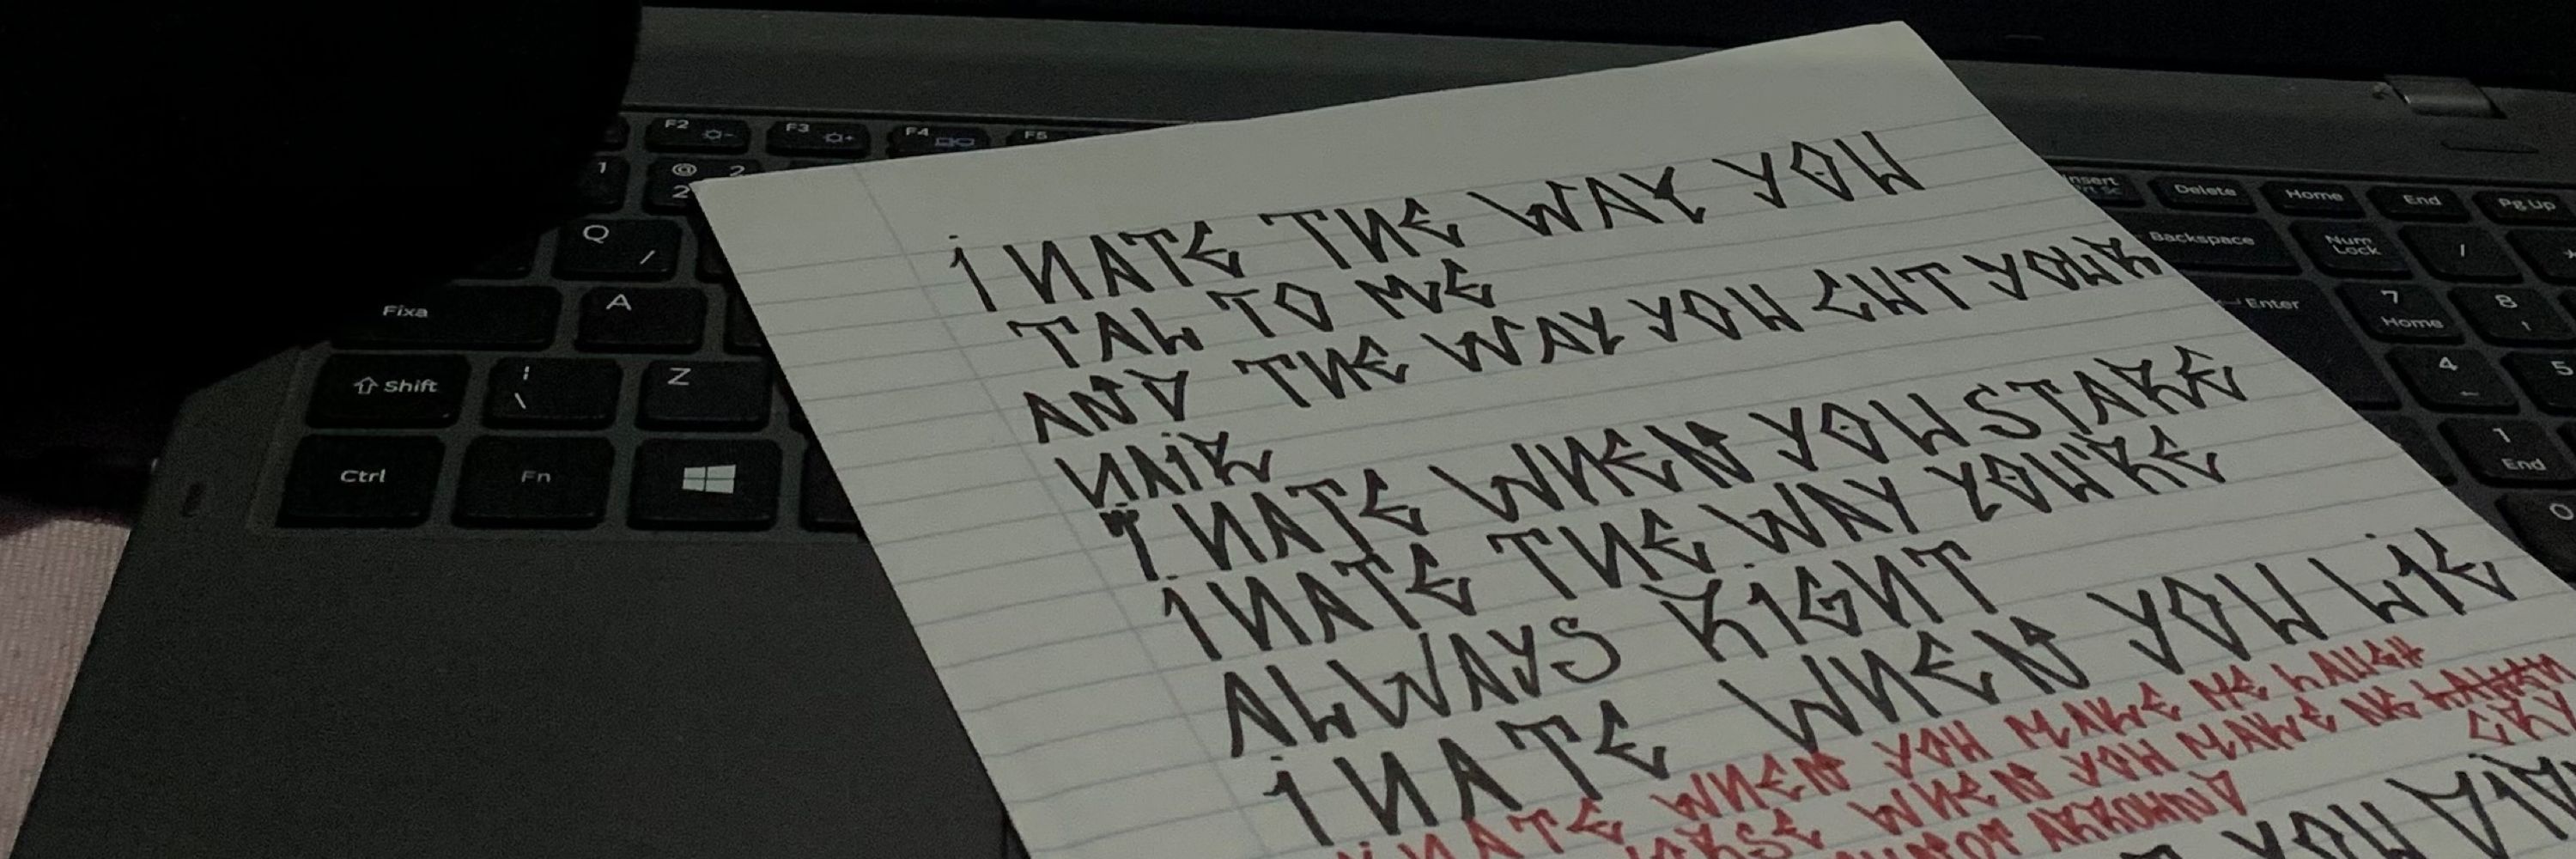 F2 F3 F4 F5
1 @ 2 2
Insert Delete Home End Pg Up
Q /
Backspace Num Lock /
Fixa A
Enter 7 Home 8
Shift | \ Z
4 5
Ctrl Fn
1 End 0
I HATE THE WAY YOU
TAL TO ME
AND THE WAY YOU CUT YOUR
HAIR
I HATE WHEN YOU STARE
I HATE THE WAY YOU'RE
ALWAYS RIGHT
I HATE WHEN YOU LIE
I HATE WHEN YOU MAKE ME LAUGH
WHEN YOU MAKE ME
CRY
NOT ARROUND
YOU